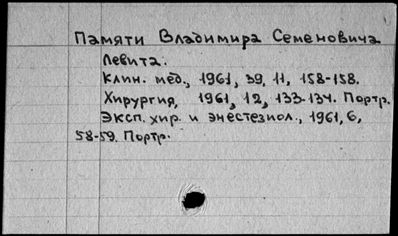 Памяти Владимира Семеновича
Левита.
Клин. мед., 1961, 39, 11, 158-158.
Хирургия, 1961, 12, 133-134. Портр.
Эксп. хир. и анестезиол., 1961, 6,
58-59. Портр.